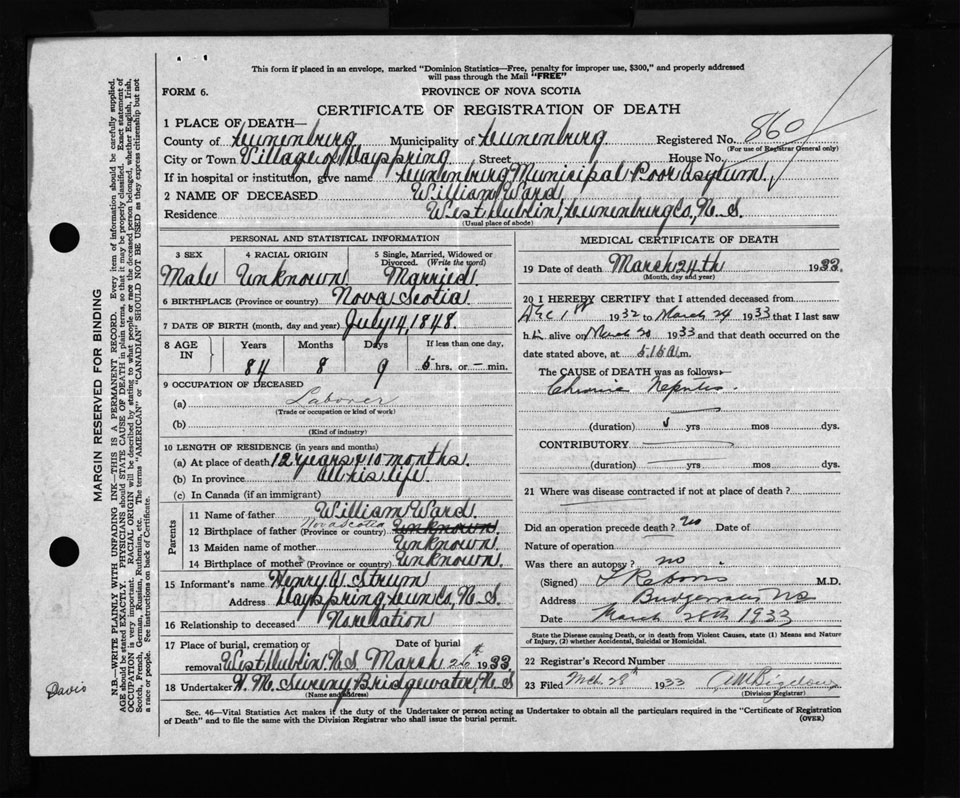 This form if placed in an envelope, marked "Dominion Statistics—Free, penalty for improper use, $300," and properly addressed
will pass through the Mail "FREE"
FORM 6.
PROVINCE OF NOVA SCOTIA
CERTIFICATE OF REGISTRATION OF DEATH
1 PLACE OF DEATH—
County of Lunenburg Municipality of Lunenburg Registered No. 860
(For use of Registrar General only)
City or Town Village of Dayspring Street House No.
If in hospital or institution, give name Lunenburg Municipal Poor Asylum.
2 NAME OF DECEASED William Ward
Residence West Dublin, Lunenburg Co, N. S.
(Usual place of abode)
PERSONAL AND STATISTICAL INFORMATION
3 SEX 4 RACIAL ORIGIN 5 Single, Married, Widowed or Divorced. (Write the word)
Male Unknown Married
6 BIRTHPLACE (Province or country) Nova Scotia
7 DATE OF BIRTH (month, day and year) July 14, 1848.
8 AGE IN Years Months Days If less than one day
84 8 9 5 hrs. or — min.
9 OCCUPATION OF DECEASED
(a) Laborer
(Trade or occupation or kind of work)
(b)
(Kind of industry)
10 LENGTH OF RESIDENCE (in years and months)
(a) At place of death 12 years & 10 months.
(b) In province all his life.
(c) In Canada (if an immigrant)
Parents
11 Name of father William Ward
12 Birthplace of father (Province or country) Nova Scotia Unknown
13 Maiden name of mother Unknown.
14 Birthplace of mother (Province or country) Unknown.
15 Informant's name Henry A. Strum
Address Dayspring, Lun Co, N. S.
16 Relationship to deceased No relation
17 Place of burial, cremation or removal Date of burial
West Dublin N. S. March 26th 1933
18 Undertaker Bridgewater, N. S
(Name and address)
MEDICAL CERTIFICATE OF DEATH
19 Date of death March 24th 1933.
(Month, day and year)
20 I HEREBY CERTIFY that I attended deceased from
Dec 1st 1932 to March 24 1933 that I last saw
h alive on March 20 1933 and that death occurred on
date stated above, at 5.15 a.m.
The CAUSE of DEATH was as follows:
Chronic
(duration) yrs mos dys.
CONTRIBUTORY
(duration) yrs mos dys.
21 Where was disease contracted if not at place of death?
Did an operation precede death? no Date of
Nature of operation
Was there an autopsy? no
(Signed) M.D.
Address Bridgewater NS
Date March 28th 1933
State the Disease causing Death, or in death from Violent Causes, state (1) Means and Nature
of Injury, (2) whether Accidental, Suicidal or Homicidal.
22 Registrar's Record Number
23 Filed Mch. 28th 1933
(Division Registrar)
Sec. 46—Vital Statistics Act makes it the duty of the Undertaker or person acting as Undertaker to obtain all the particulars required in the "Certificate of Registration
of Death" and to file the same with the Division Registrar who shall issue the burial permit.
(OVER)
MARGIN RESERVED FOR BINDING
N.B.—WRITE PLAINLY WITH UNFADING INK—THIS IS A PERMANENT RECORD. Every item of information should be carefully supplied.
AGE should be stated EXACTLY. PHYSICIANS should STATE CAUSE OF DEATH in plain terms, so that it may be properly classified. Exact statement of
OCCUPATION is very important. RACIAL ORIGIN will be described by stating to what people or race the deceased person belonged, whether English, Irish,
Scotch, French, German, Russian, Ruthenian, etc. The terms "AMERICAN" or "CANADIAN" SHOULD NOT BE USED as they express citizenship but not
a race or people. See instructions on back of Certificate.
Davis